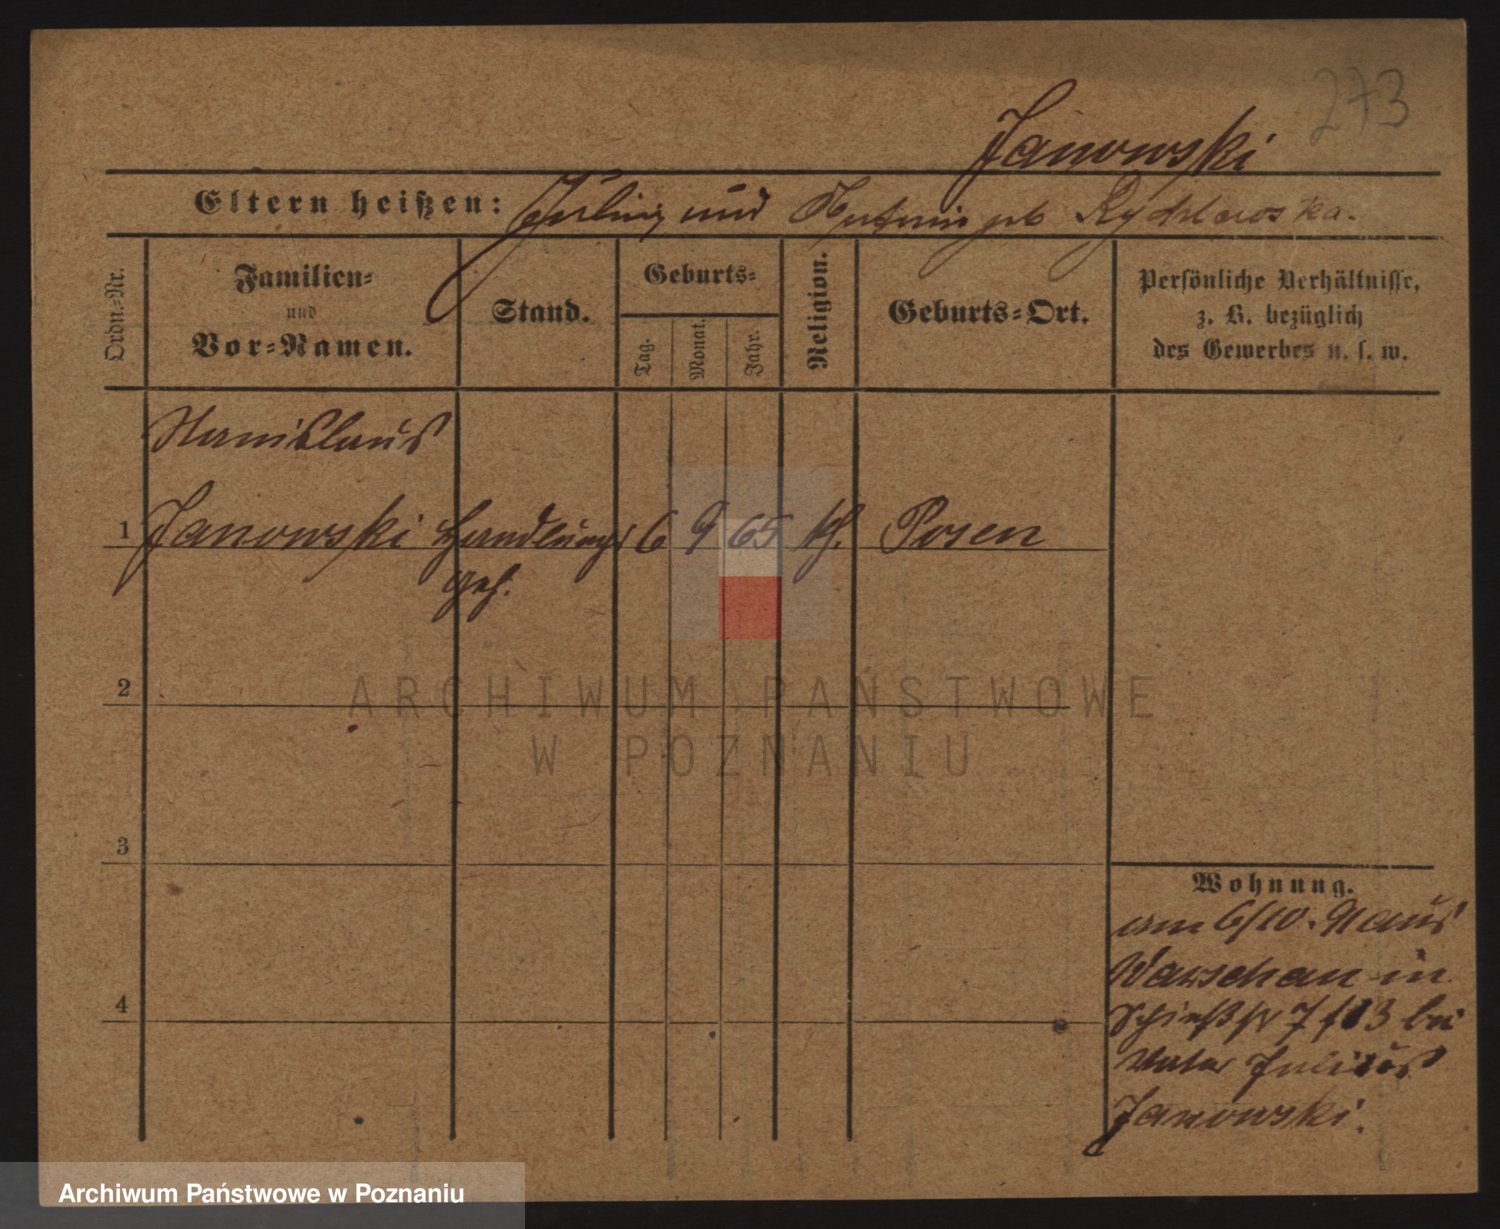 273
Janowski
Eltern heißen: Julius und Antonie geb Rychlewska.
Ordn.-Nr.
Familien-
und
Vor-Namen.
Stand.
Geburts-
Tag.
Monat.
Jahr.
Religion.
Geburts-Ort.
Persönliche Verhältnisse,
z. B. bezüglich
des Gewerbes u. s. w.
Stanislaus
1 Janowski Handlungs 6 9 65 kth. Posen
geh.
2
3
4
ARCHIWUM PAŃSTWOWE
W POZNANIU
Wohnung.
am 6/10. 91 aus
Warschau in
Schießstr 7 bei
Vater Julius
Janowski.
Archiwum Państwowe w Poznaniu